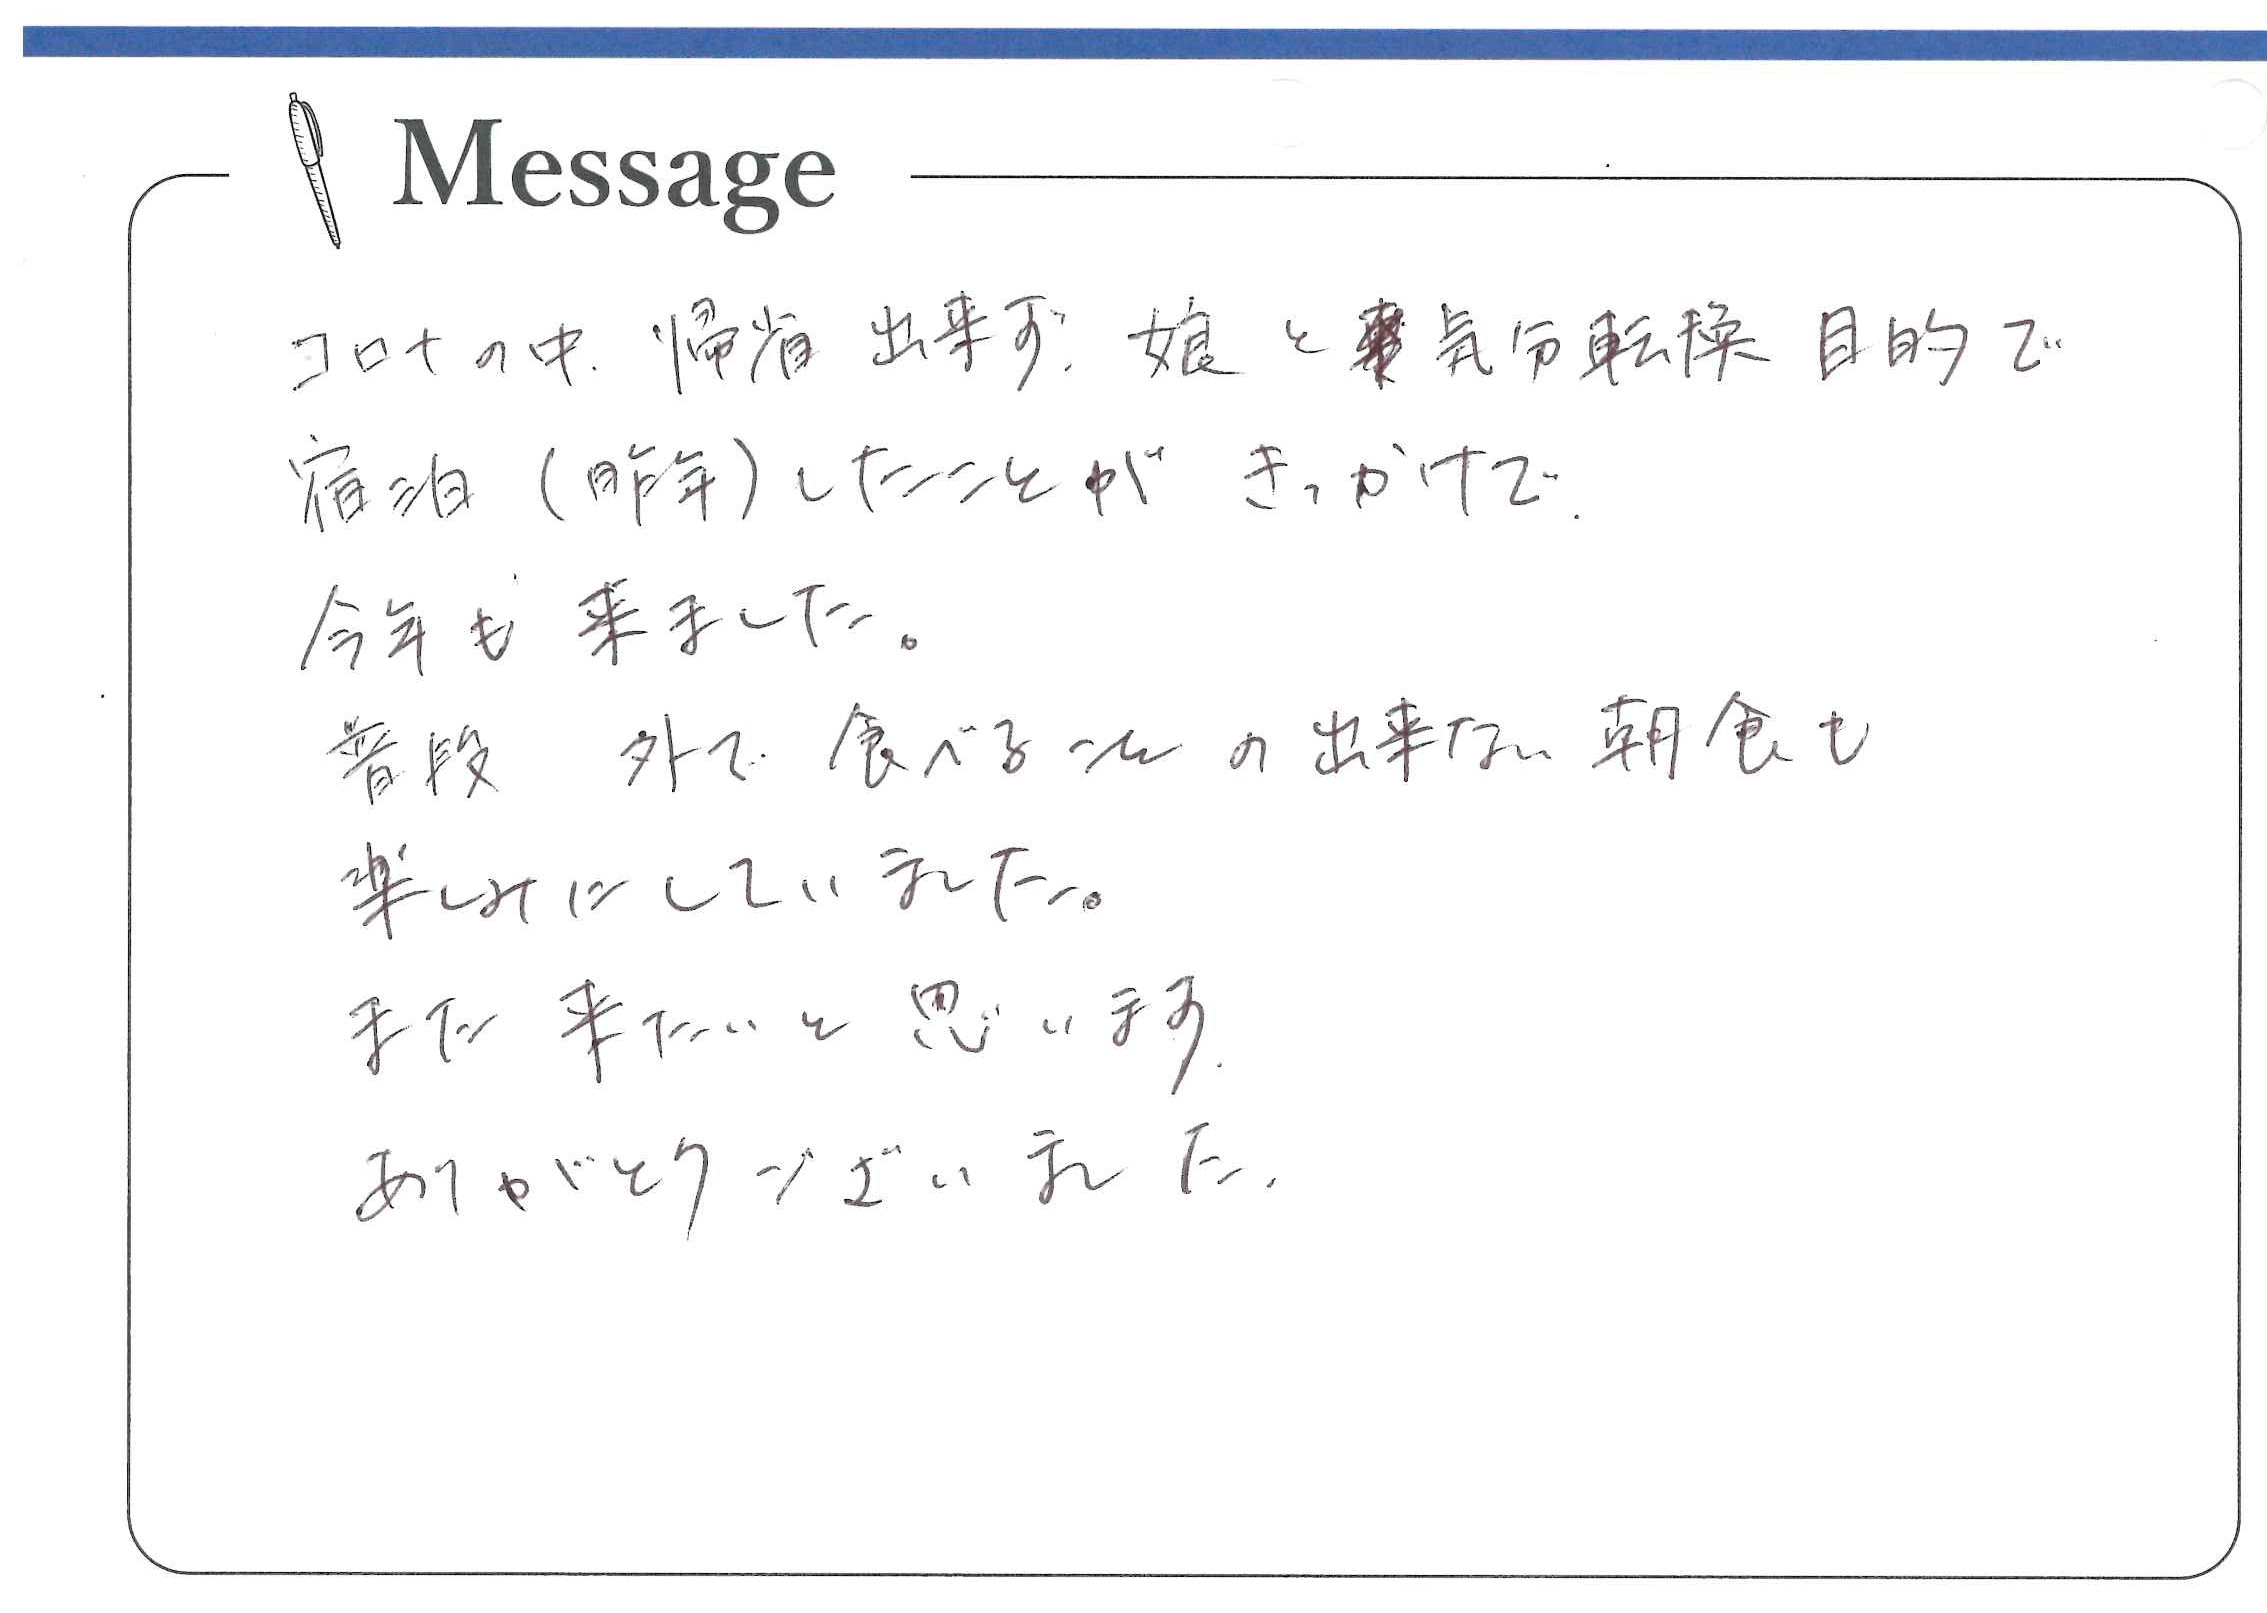 Message
コロナの中、帰省出来ず、娘と気分転換目的で
宿泊（昨年）したことがきっかけで、
今年も来ました。
普段 外で食べることの出来ない朝食も
楽しみにしていました。
また来たいと思います。
ありがとうございました。